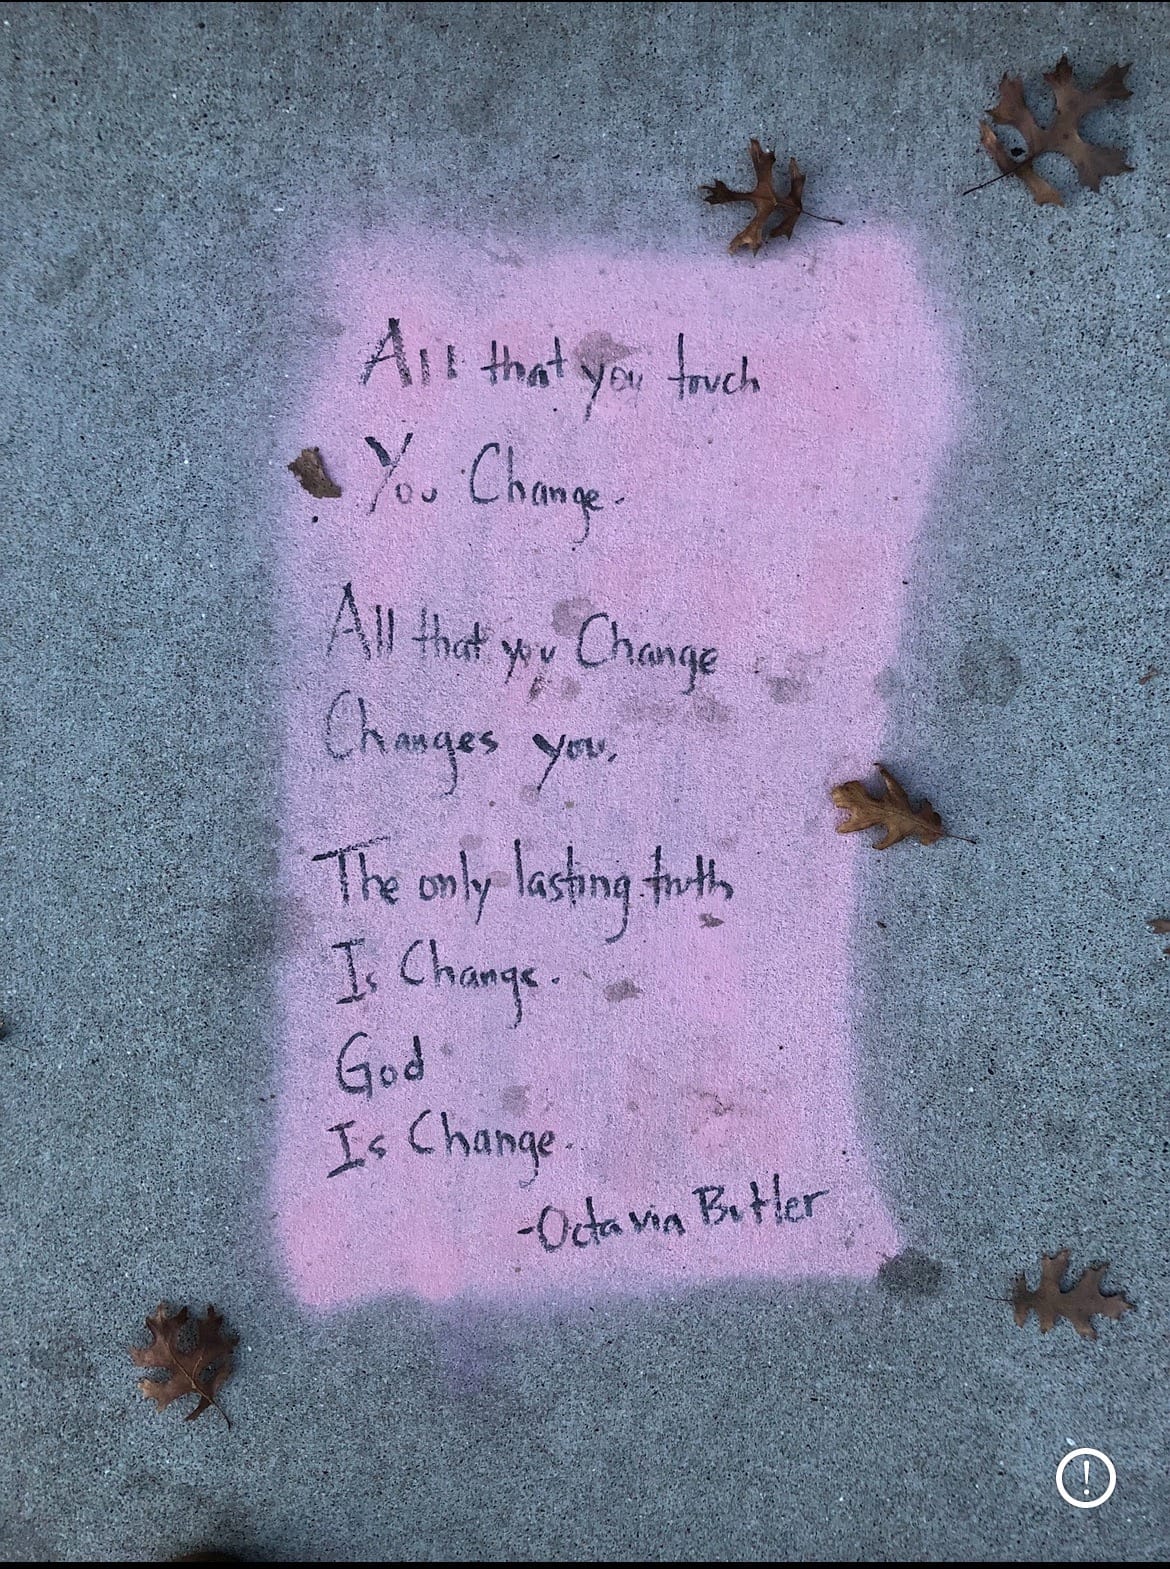 All that you touch
You Change.
All that you Change
Changes you.
The only lasting truth
Is Change.
God
Is Change.
-Octavia Butler